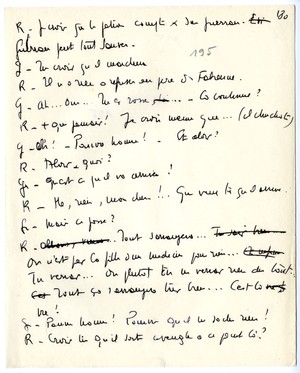 130
R - Je crois que le patron compte
Guérson peut tout sauver.
195
G - Tu crois qu'il marchera
R - Il n'a rien à refuser au père de Fabienne.
G - Ah... Oui... Tu as
Ça continue ?
R - + que jamais ! Je crois même que... (il chuchote)
G - Oh ! - Pauvre homme ! - Et alors ?
R - Alors - quoi ?
G - Qu'est-ce qu'il va arriver !
R - Ho, rien, mon cher !.. Que veux-tu qu'il arrive.
G - Mais ce gosse ?
R - Tout s'arrangera...
On n'est pas la fille d'un médecin pour rien...
Tu verras... On plutôt tu ne verras rien du tout.
Tout ça s'arrangera très bien...
vie !
G - Pauvre homme ! Pourvu qu'il ne sache rien !
R - Crois-tu qu'il soit aveugle à ce point-là ?